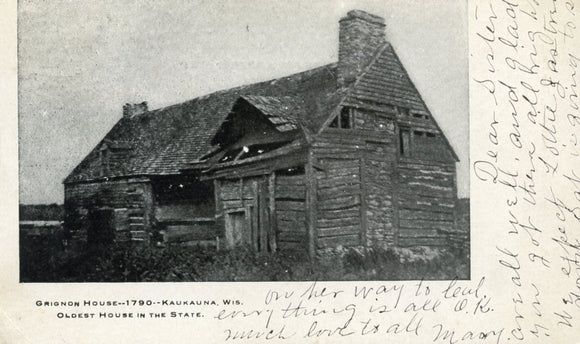 GRIGNON HOUSE--1790--KAUKAUNA, WIS.
OLDEST HOUSE IN THE STATE.
Dear Sister
are all well, and glad
you got there all right
We expect Lottie
on her way to
everything is all O.K.
much love to all Mary.